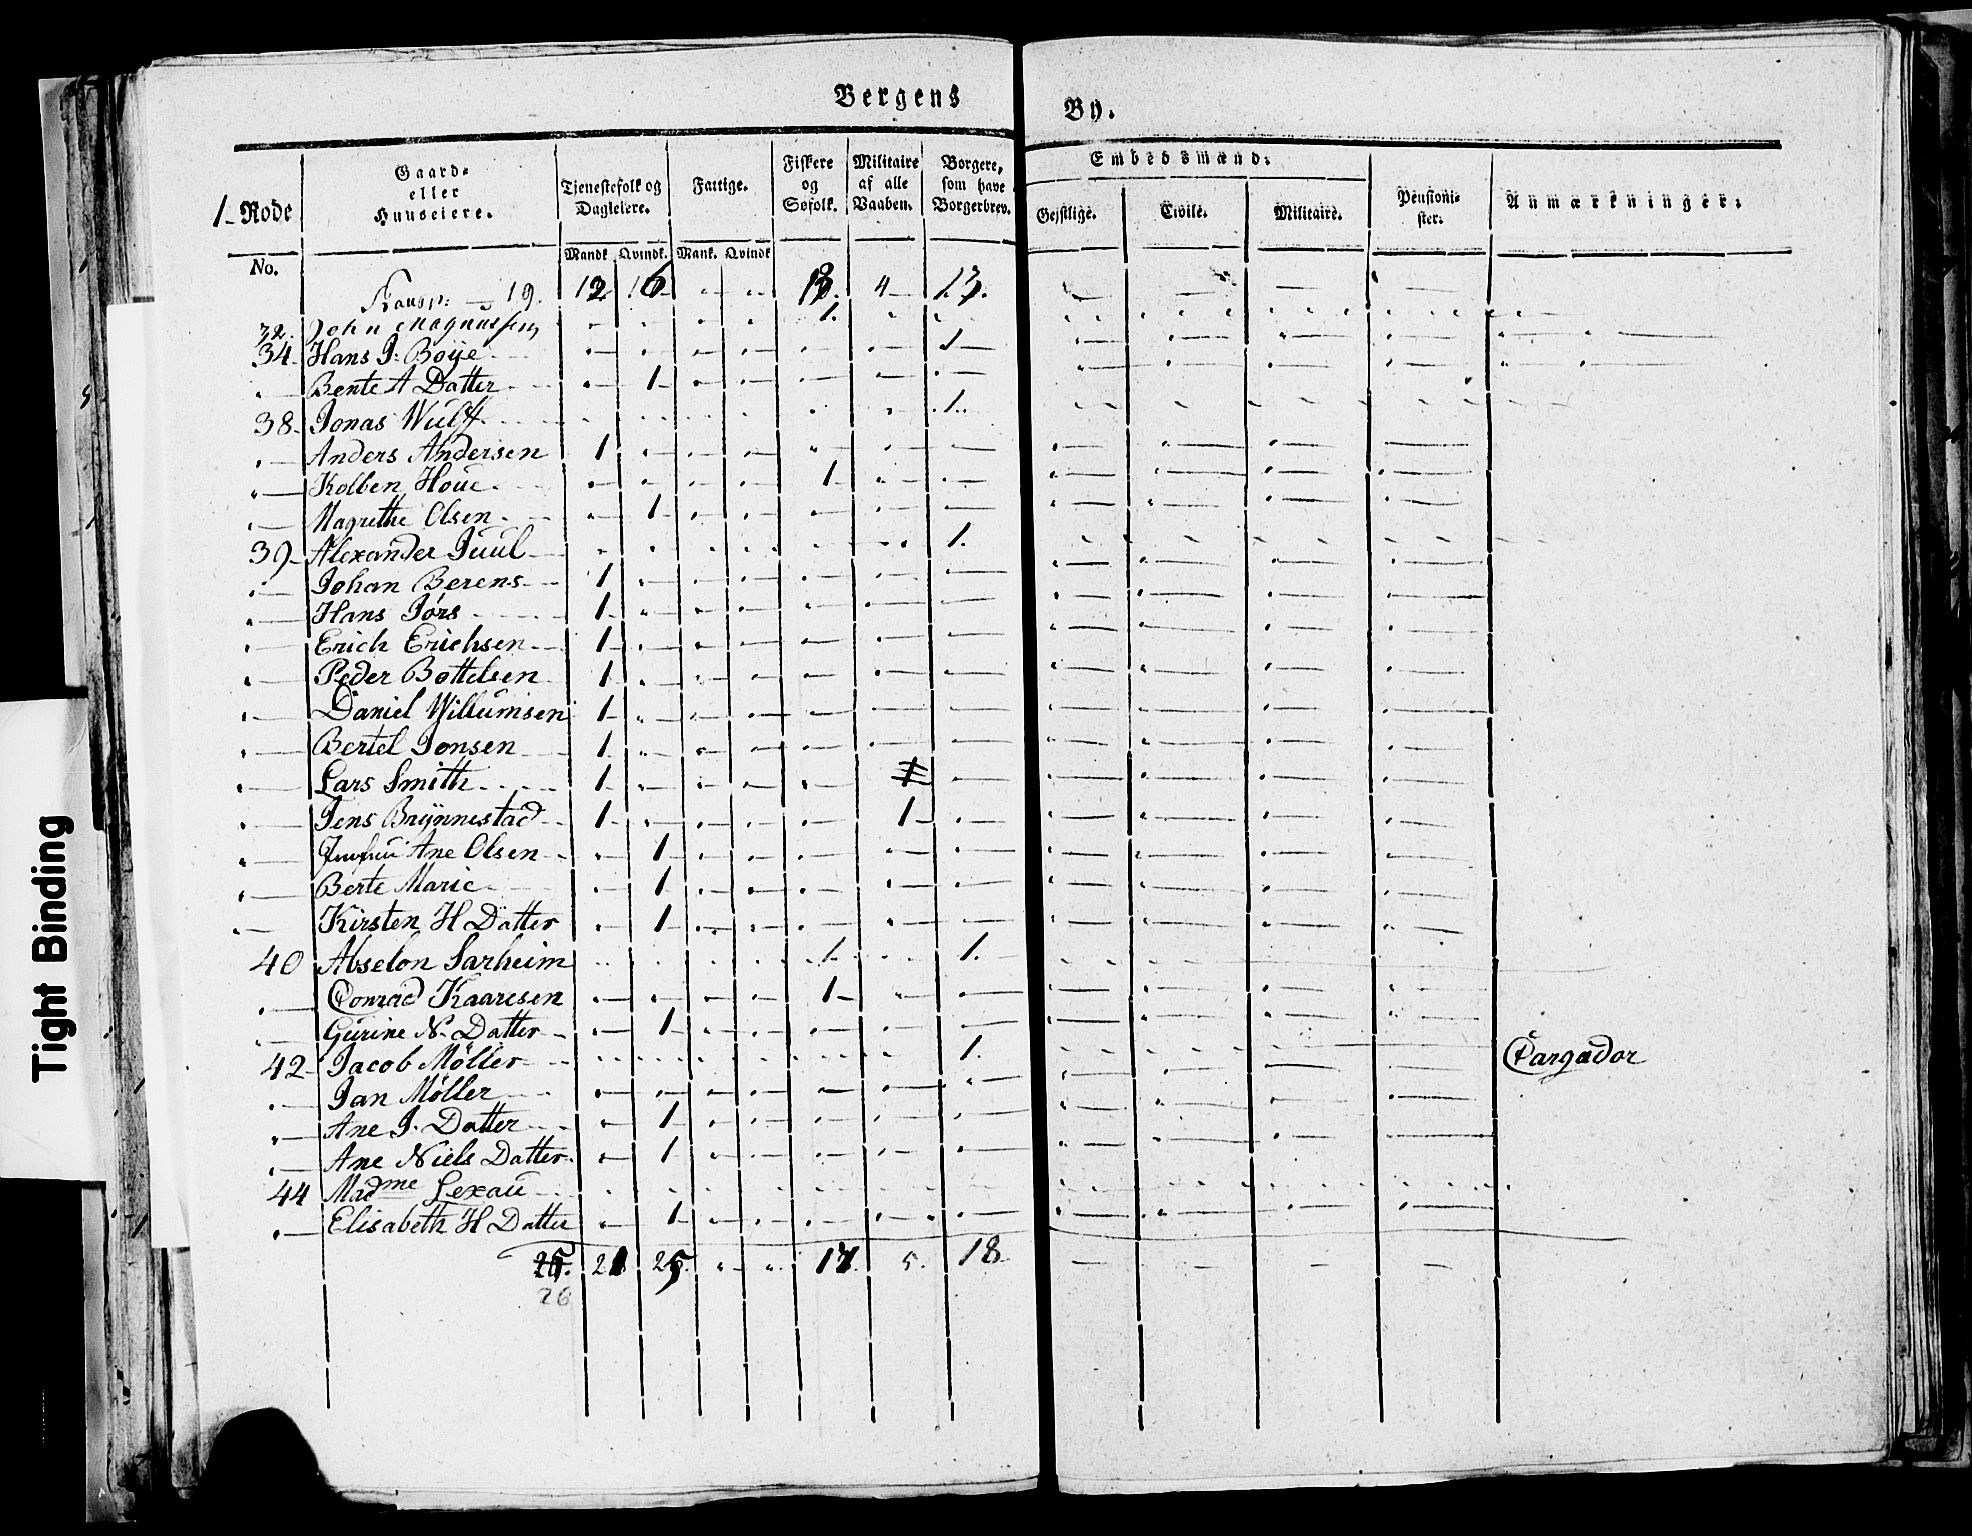 Bergens By.
1- Rode
Gaard- eller Huuseiere.
Tjenestefolk og Dagleiere.
Fattige.
Fiskere og Søfolk.
Militaire af alle Vaaben.
Borgere, som have Borgerbrev.
Embedsmænd:
Gejstlige.
Civile.
Militaire.
Pensionister.
Anmærkninger.
No. Mandk. Qvindk. Mank. Qvindk
Transp: — 19. 12 16 " " 13. 4 13.
32. John Magnussen 1.
34. Hans J. Boÿe 1
" Bente A Datter 1
38. Jonas Wulff 1.
" Anders Andersen 1
" Kolben Houe 1
" Magrethe Olsen 1
39. Alexander Juul 1.
" Johan Berens 1
" Hans Jørs 1
" Erich Erichsen 1
" Peder Bottelsen 1
" Daniel Willumsen 1
" Bertel Jonsen 1
" Lars Smith 1
" Jens Brÿnnestad 1 1
" Jomfru Ane Olsen 1
" Berte Marie 1
" Kirsten H Datter 1
40 Abselon Sarheim 1. 1.
" Conrad Kaaresen 1
" Gurine N. Datter 1
42 Jacob Møller 1. Cargador
" Jan Møller
" Ane J. Datter 1
" Ane Niels Datter 1
44 Madme Lexau
" Elisabeth H Datter 1
25. 21 25. " " 17. 5. 18
26
Tight Binding